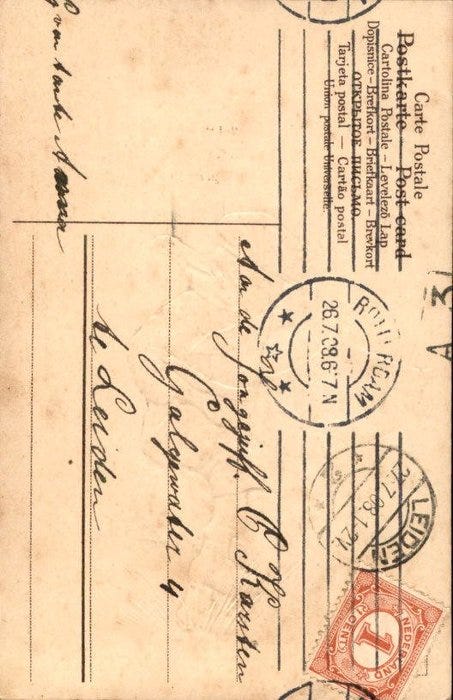 Carte Postale
Postkarte — Post card
Cartolina Postale – Levelező Lap
Dopisnice – Brefkort – Briefkaart – Brevkort
ОТКРЫТОЕ ПИСЬМО
Tarjeta postal — Cartão postal
Union postale Universelle.
van tante Anna
ROTTERDAM
26.7.08.6-7N
LEIDEN
NEDERLAND
1
CENT
Aan de Jongejuff. C Karsten
Galgewater 4
te Leiden